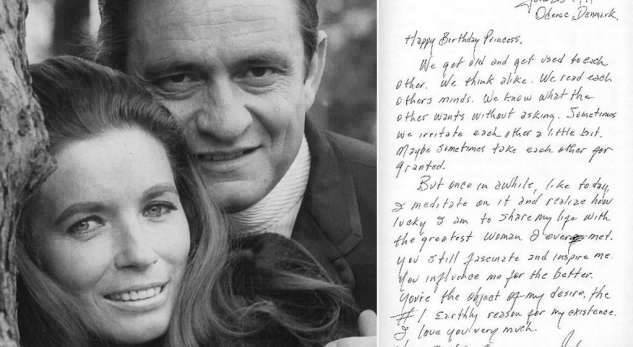 Odense, Denmark.
Happy Birthday Princess,
We get old and get used to each
other. We think alike. We read each
others minds. We know what the
other wants without asking. Sometimes
we irritate each other a little bit.
Maybe sometimes take each other for
granted.
But once in awhile, like today,
I meditate on it and realize how
lucky I am to share my life with
the greatest woman I ever met.
You still fascinate and inspire me.
You influence me for the better.
You're the object of my desire, the
#1 Earthly reason for my existence.
I love you very much.